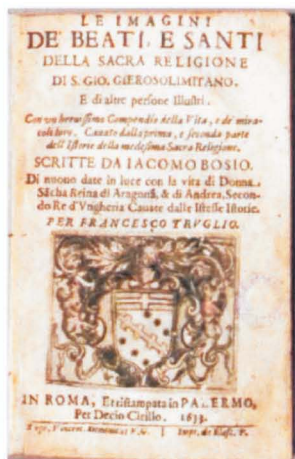 LE IMAGINI
DE' BEATI, E SANTI
DELLA SACRA RELIGIONE
DI S. GIO. GIEROSOLIMITANO.
E di altre persone Illustri.
Con un breuissimo Compendio della Vita, e de' mira-
coli loro. Cauate dalla prima, e seconda parte
dell'Istorie della medesima Sacra Religione.
SCRITTE DA IACOMO BOSIO.
Di nuouo date in luce con la vita di Donna
Sācha Reina di Aragona, & di Andrea Secon-
do Re d'Vngheria Cauate dalle istesse Istorie.
PER FRANCESCO TRVGLIO.
IN ROMA, Et ristampata in PALERMO,
Per Decio Cirillo. 1633.